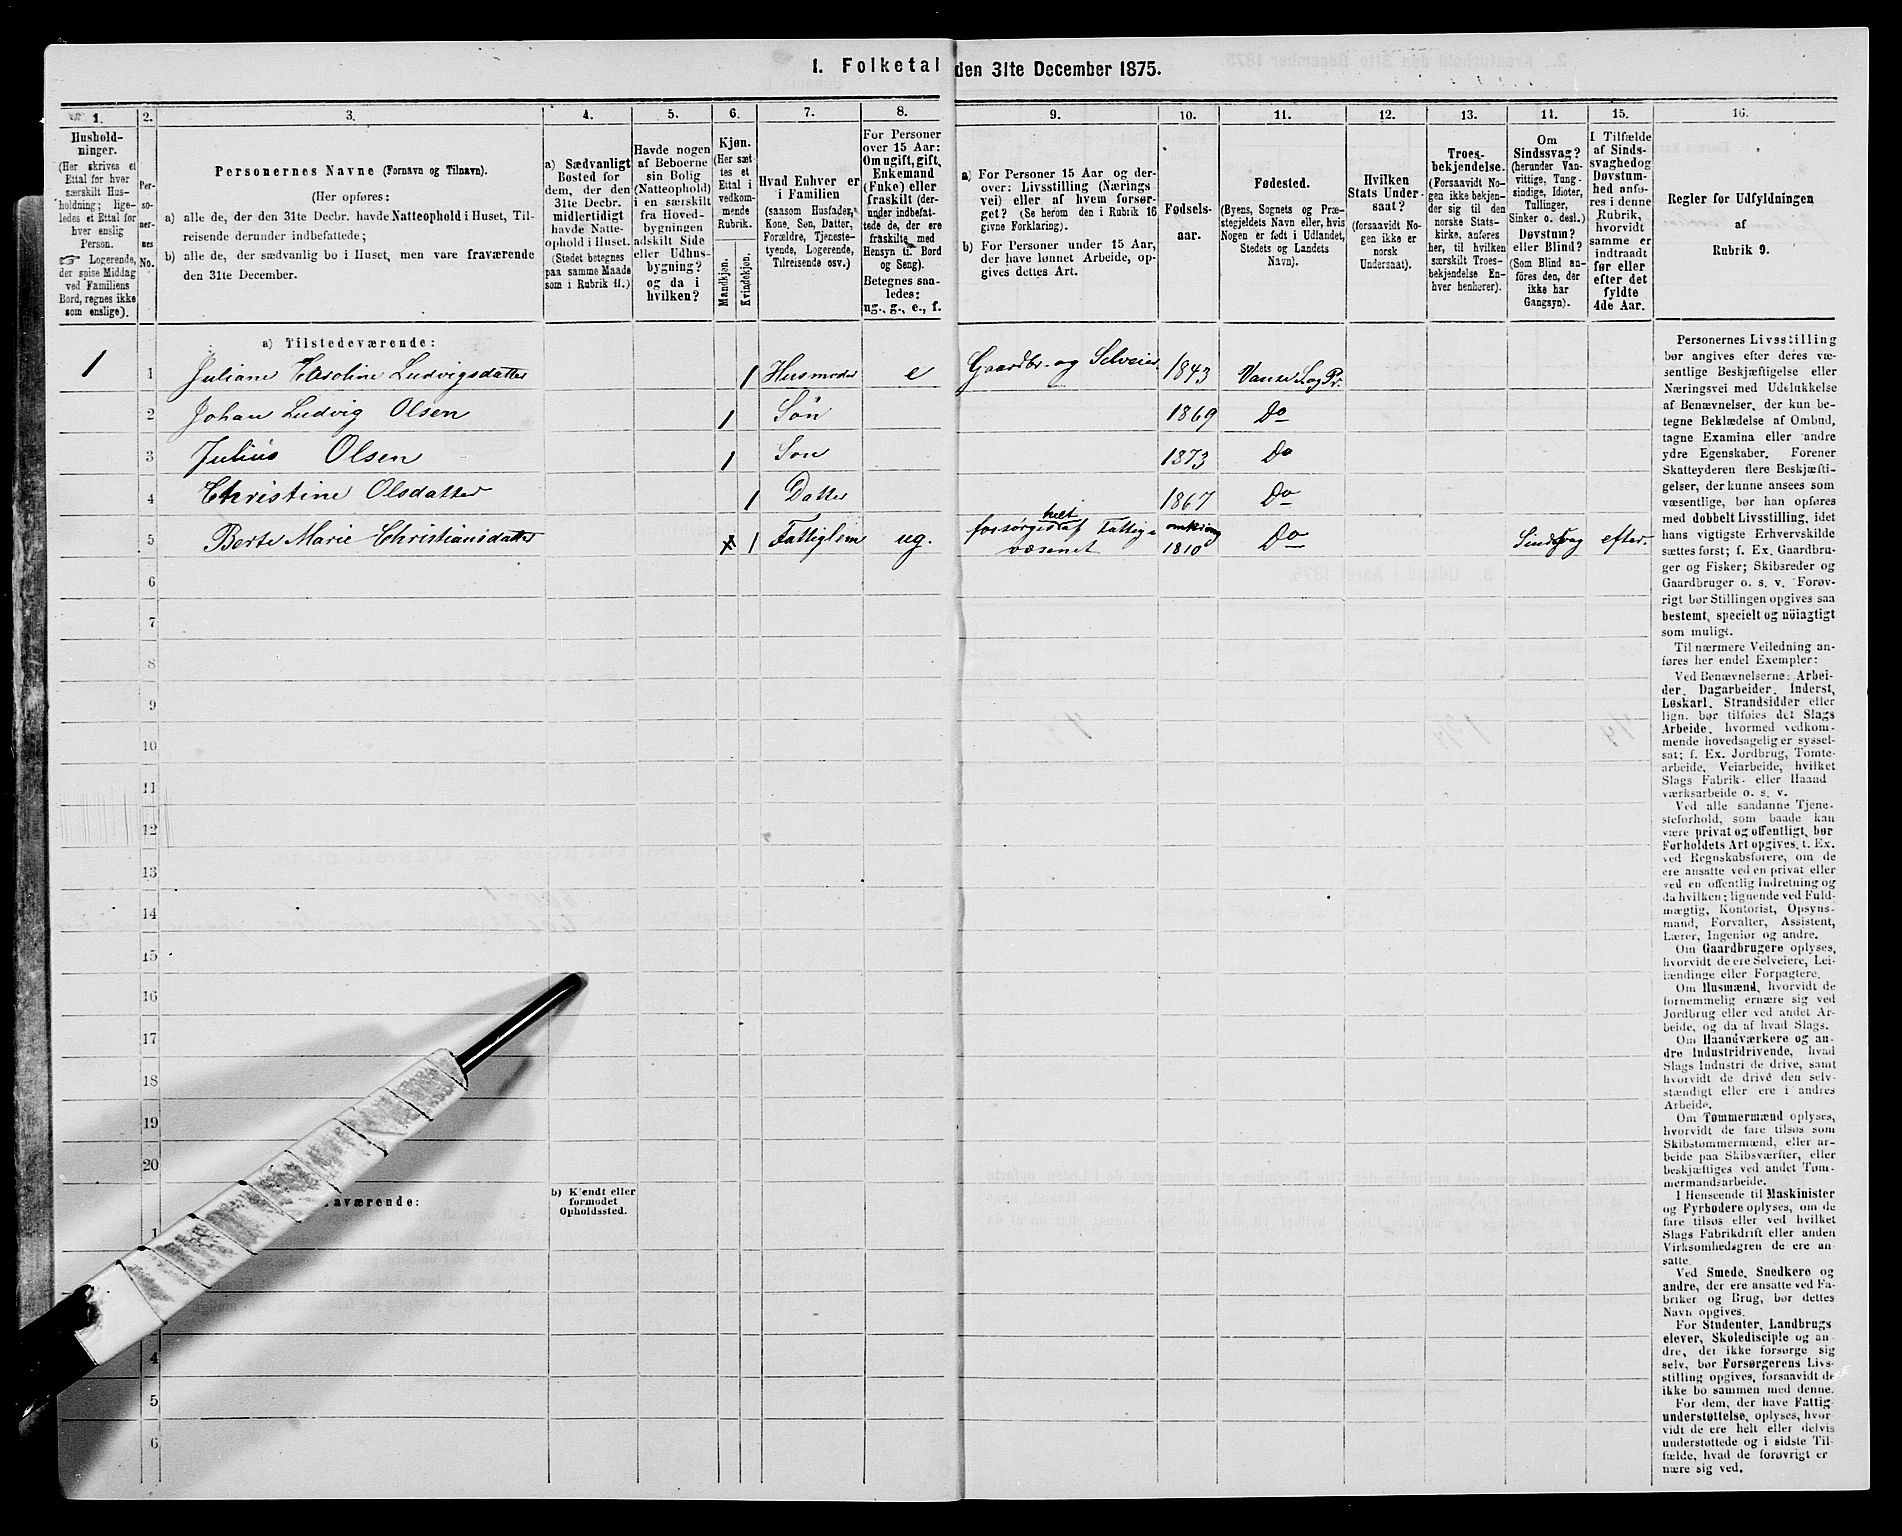 1. Folketal den 31te December 1875.
1.
Hushold-
ninger.
(Her skrives et
Ettal for hver
særskilt Hus-
holdning; lige-
ledes et Ettal for
hver enslig
Person.
☞ Logerende,
der spise Middag
ved Familiens
Bord, regnes ikke
som enslige).
2.
Per-
so-
ner-
nes
No.
3.
Personernes Navne (Fornavn og Tilnavn).
(Her opføres:
a) alle de, der den 31te Decbr. havde Natteophold i Huset, Til-
reisende derunder indbefattede;
b) alle de, der sædvanlig bo i Huset, men vare fraværende
den 31te December.
4.
a) Sædvanligt
Bosted for
dem, der den
31te Decbr.
midlertidigt
havde Natte-
ophold i Huset.
(Stedet betegnes
paa samme Maade
som i Rubrik 11.)
5.
Havde nogen
af Beboerne
sin Bolig
(Natteophold)
i en særskilt
fra Hoved-
bygningen
adskilt Side
eller Udhus-
bygning?
og da i
hvilken?
6.
Kjøn.
(Her sæt-
tes et
Ettal i
vedkom-
mende
Rubrik.
Mandkjøn.
Kvindekjøn.
7.
Hvad Enhver er
i Familien
(saasom Husfader,
Kone, Søn, Datter,
Forældre, Tjeneste-
tyende, Logerende,
Tilreisende osv.)
8.
For Personer
over 15 Aar:
Om ugift, gift,
Enkemand
(Enke) eller
fraskilt (der-
under indbefat-
tede de, der ere
fraskilte med
Hensyn til Bord
og Seng).
Betegnes saa-
ledes:
ug., g., e., f.
9.
a) For Personer 15 Aar og der-
over: Livsstilling (Nærings-
vei) eller af hvem forsør-
get? (Se herom den i Rubrik 16
givne Forklaring).
b) For Personer under 15 Aar,
der have lønnet Arbeide, op-
gives dettes Art.
10.
Fødsels-
aar.
11.
Fødested.
(Byens, Sognets og Præ-
stegjeldets Navn eller, hvis
Nogen er født i Udlandet,
Stedets og Landets
Navn).
12.
Hvilken
Stats Under-
saat?
(forsaavidt No-
gen ikke er
norsk
Undersaat).
13.
Troes-
bekjendelse.
(Forsaavidt No-
gen ikke bekjen-
der sig til den
norske Stats-
kirke, anføres
her, til hvilken
særskilt Troes-
bekjendelse En-
hver henhører).
14.
Om
Sindssvag?
(herunder Van-
vittige, Tung-
sindige, Idioter,
Tullinger,
Sinker o. desl.)
Døvstum?
eller Blind?
(Som Blind an-
føres den, der
ikke har
Gangsyn).
15.
I Tilfælde
af Sinds-
svaghed og
Døvstum-
hed anfø-
res i denne
Rubrik,
hvorvidt
samme er
indtraadt
før eller
efter det
fyldte
4de Aar.
16.
Regler for Udfyldningen
af
Rubrik 9.
a) Tilstedeværende:
1 1 Juliane Karoline Ludvigsdatter 1 Husmoder e Gaardbr. og Selveier 1843 Vanse S. og Pr.
2 Johan Ludvig Olsen 1 Søn 1869 Do
3 Julius Olsen 1 Søn 1873 Do
4 Christine Olsdatter 1 Datter 1867 Do
5 Berte Marie Christiansdatter 1 Fattiglem ug. forsørges helt af Fattig-
væsenet omkring
1810 Do Sindssvag efter.
6
7
8
9
10
11
12
13
14
15
16
17
18
19
20
aværende:
b) Kjendt eller
formodet
Opholdssted.
1
4
5
6
Personernes Livsstilling
bør angives efter deres væ-
sentlige Beskjæftigelse eller
Næringsvei med Udelukkelse
af Benævnelser, der kun be-
tegne Beklædelse af Ombud,
tagne Examina eller andre
ydre Egenskaber. Forener
Skatteyderen flere Beskjæfti-
gelser, der kunne ansees som
væsentlige, bør han opføres
med dobbelt Livsstilling, idet
hans vigtigste Erhvervskilde
sættes først; f. Ex. Gaardbru-
ger og Fisker; Skibsreder og
Gaardbruger o. s. v. Forøv-
rigt bør Stillingen opgives saa
bestemt, specielt og nøiagtigt
som muligt.
Til nærmere Veiledning an-
føres her endel Exempler:
Ved Benævnelserne: Arbei-
der, Dagarbeider, Inderst,
Løskarl, Strandsidder eller
lign. bør tilføies det Slags
Arbeide, hvormed vedkom-
mende hovedsagelig er syssel-
sat; f. Ex. Jordbrug, Tomte-
arbeide, Veiarbeide, hvilket
Slags Fabrik- eller Haand-
værksarbeide o. s. v.
Ved alle saadanne Tjene-
steforhold, som baade kan
være privat og offentligt, bør
Forholdets Art opgives, t. Ex.
ved Regnskabsførere, om de
ere ansatte ved en privat eller
ved en offentlig Indretning og
da hvilken; lignende ved Fuld-
mægtig, Kontorist, Opsyns-
mand, Forvalter, Assistent,
Lærer, Ingeniør og andre.
Om Gaardbrugere oplyses,
hvorvidt de ere Selveiere, Lei-
lændinge eller Forpagtere.
Om Husmænd, hvorvidt de
fornemmelig ernære sig ved
Jordbrug eller ved andet Ar-
beide, og da af hvad Slags.
Om Haandværkere og an-
dre Industridrivende, hvad
Slags Industri de drive, samt
hvorvidt de drive den selv-
stændigt eller ere i andres
Arbeide.
Om Tømmermænd oplyses,
hvorvidt de fare tilsøs som
Skibstømmermænd, eller ar-
beide paa Skibsværfter, eller
beskjæftiges ved andet Tøm-
mermandsarbeide.
I Henseende til Maskinister
og Fyrbødere oplyses, om de
fare tilsøs eller ved hvilket
Slags Fabrikdrift eller anden
Virksomhedsgren de ere an-
satte.
Ved Smede, Snedkere og
andre, der ere ansatte ved Fa-
briker og Brug, bør dettes
Navn opgives.
For Studenter, Landbrugs-
elever, Skoledisciple og an-
dre, der ikke forsørge sig
selv, bør Forsørgerens Livs-
stilling opgives, forsaavidt de
ikke bo sammen med denne.
For dem, der have Fattig-
understøttelse, oplyses, hvor-
vidt de ere helt eller delvis
understøttede og i sidste Til-
fælde, hvad de forøvrigt er-
nære sig ved.